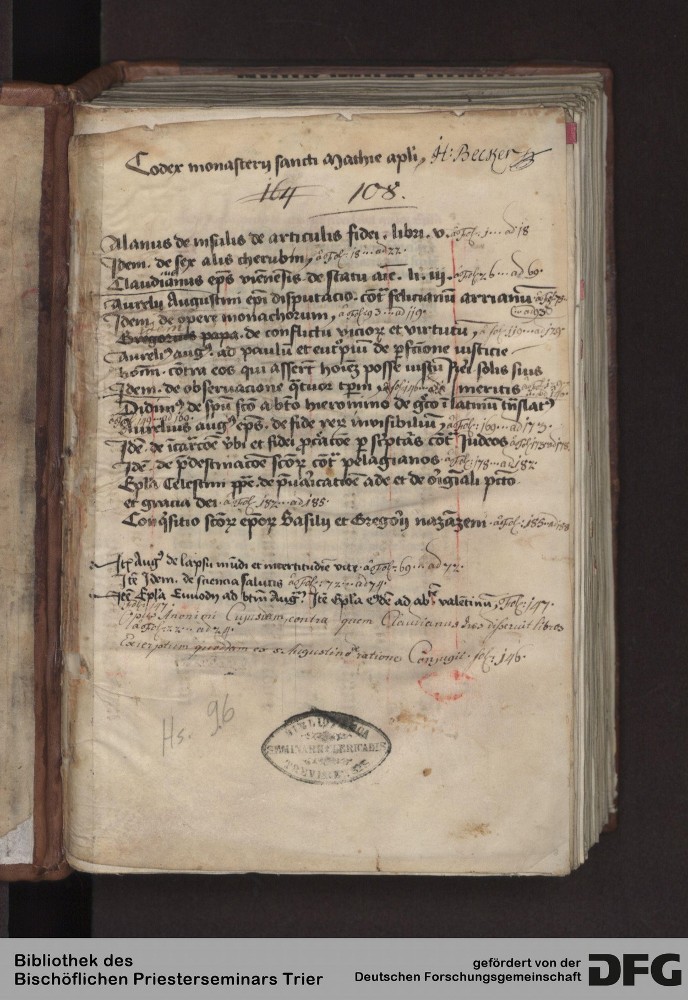 Codex monasterij sancti Mathie apli, H: Becker
164 108.
Alanus de insulis de articulis fidei. libri. v. a Fol. 1 ... ad 18
Idem. de sex alis cherubin, a Fol. 18 ... ad 22.
Claudianus eps vienensis de statu aie. li. iij. ad 69.
Aurelij Augustini epi disputacio. cot felicianum arrianum
Idem. de opere monachorum, a Fol. 93 .. ad 119.
Gregorius papa. de conflictu vicior et virtutu,
Aureli9 aug9. ad paulu et eutpiu de pfcione iusticie
contra eos qui assert hoiez posse solis suis
Idem. de obseruacione qtuor tpm meritis
Didim9 de spu sco a bto hieronimo de gco i latinu tnslat9
a Fol. 149 .. ad 169.
Aurelius aug9 eps. de fide rer inuisibiliu, a Fol. 169 ... ad 173.
Ide. de icarcoe vbi et fidei pcatoe p septas cot Iudeos a Fol. 173 ad 178.
Ide. de pdestinacoe scor cot pelagianos. a Fol. 178 .. ad 182
Epla Celestini ppe. de puaricatioe ade et de origiali pcto
et gracia dei. a Fol. 182 ... ad 185
Conqsitio scor epor Basilij et Gregorij nazazeni. a Fol. 185 ad 188
It Aug9 de lapsu mudi et incertitudie vite. a Fol. 69. ad 72.
Ite Idem. de sciencia salutis a Fol. 72 ... ad 74.
Ite Epla Euuodij ad btm Aug9. Ite Epla ade ad abb valetinu, Fol. 147.
Fol. 147.
Anonimi Cujusdam, contra quem Claudianus suos libros
a Fol. 22 ... ad 24.
Excerptum quoddam ex s. Augustino ratione Conjugii. fol. 146.
Hs. 96
BIBLIOTHECA
SEMINARII CLERICALIS
TREVIRENSIS
Bibliothek des
Bischöflichen Priesterseminars Trier
gefördert von der
Deutschen Forschungsgemeinschaft
DFG